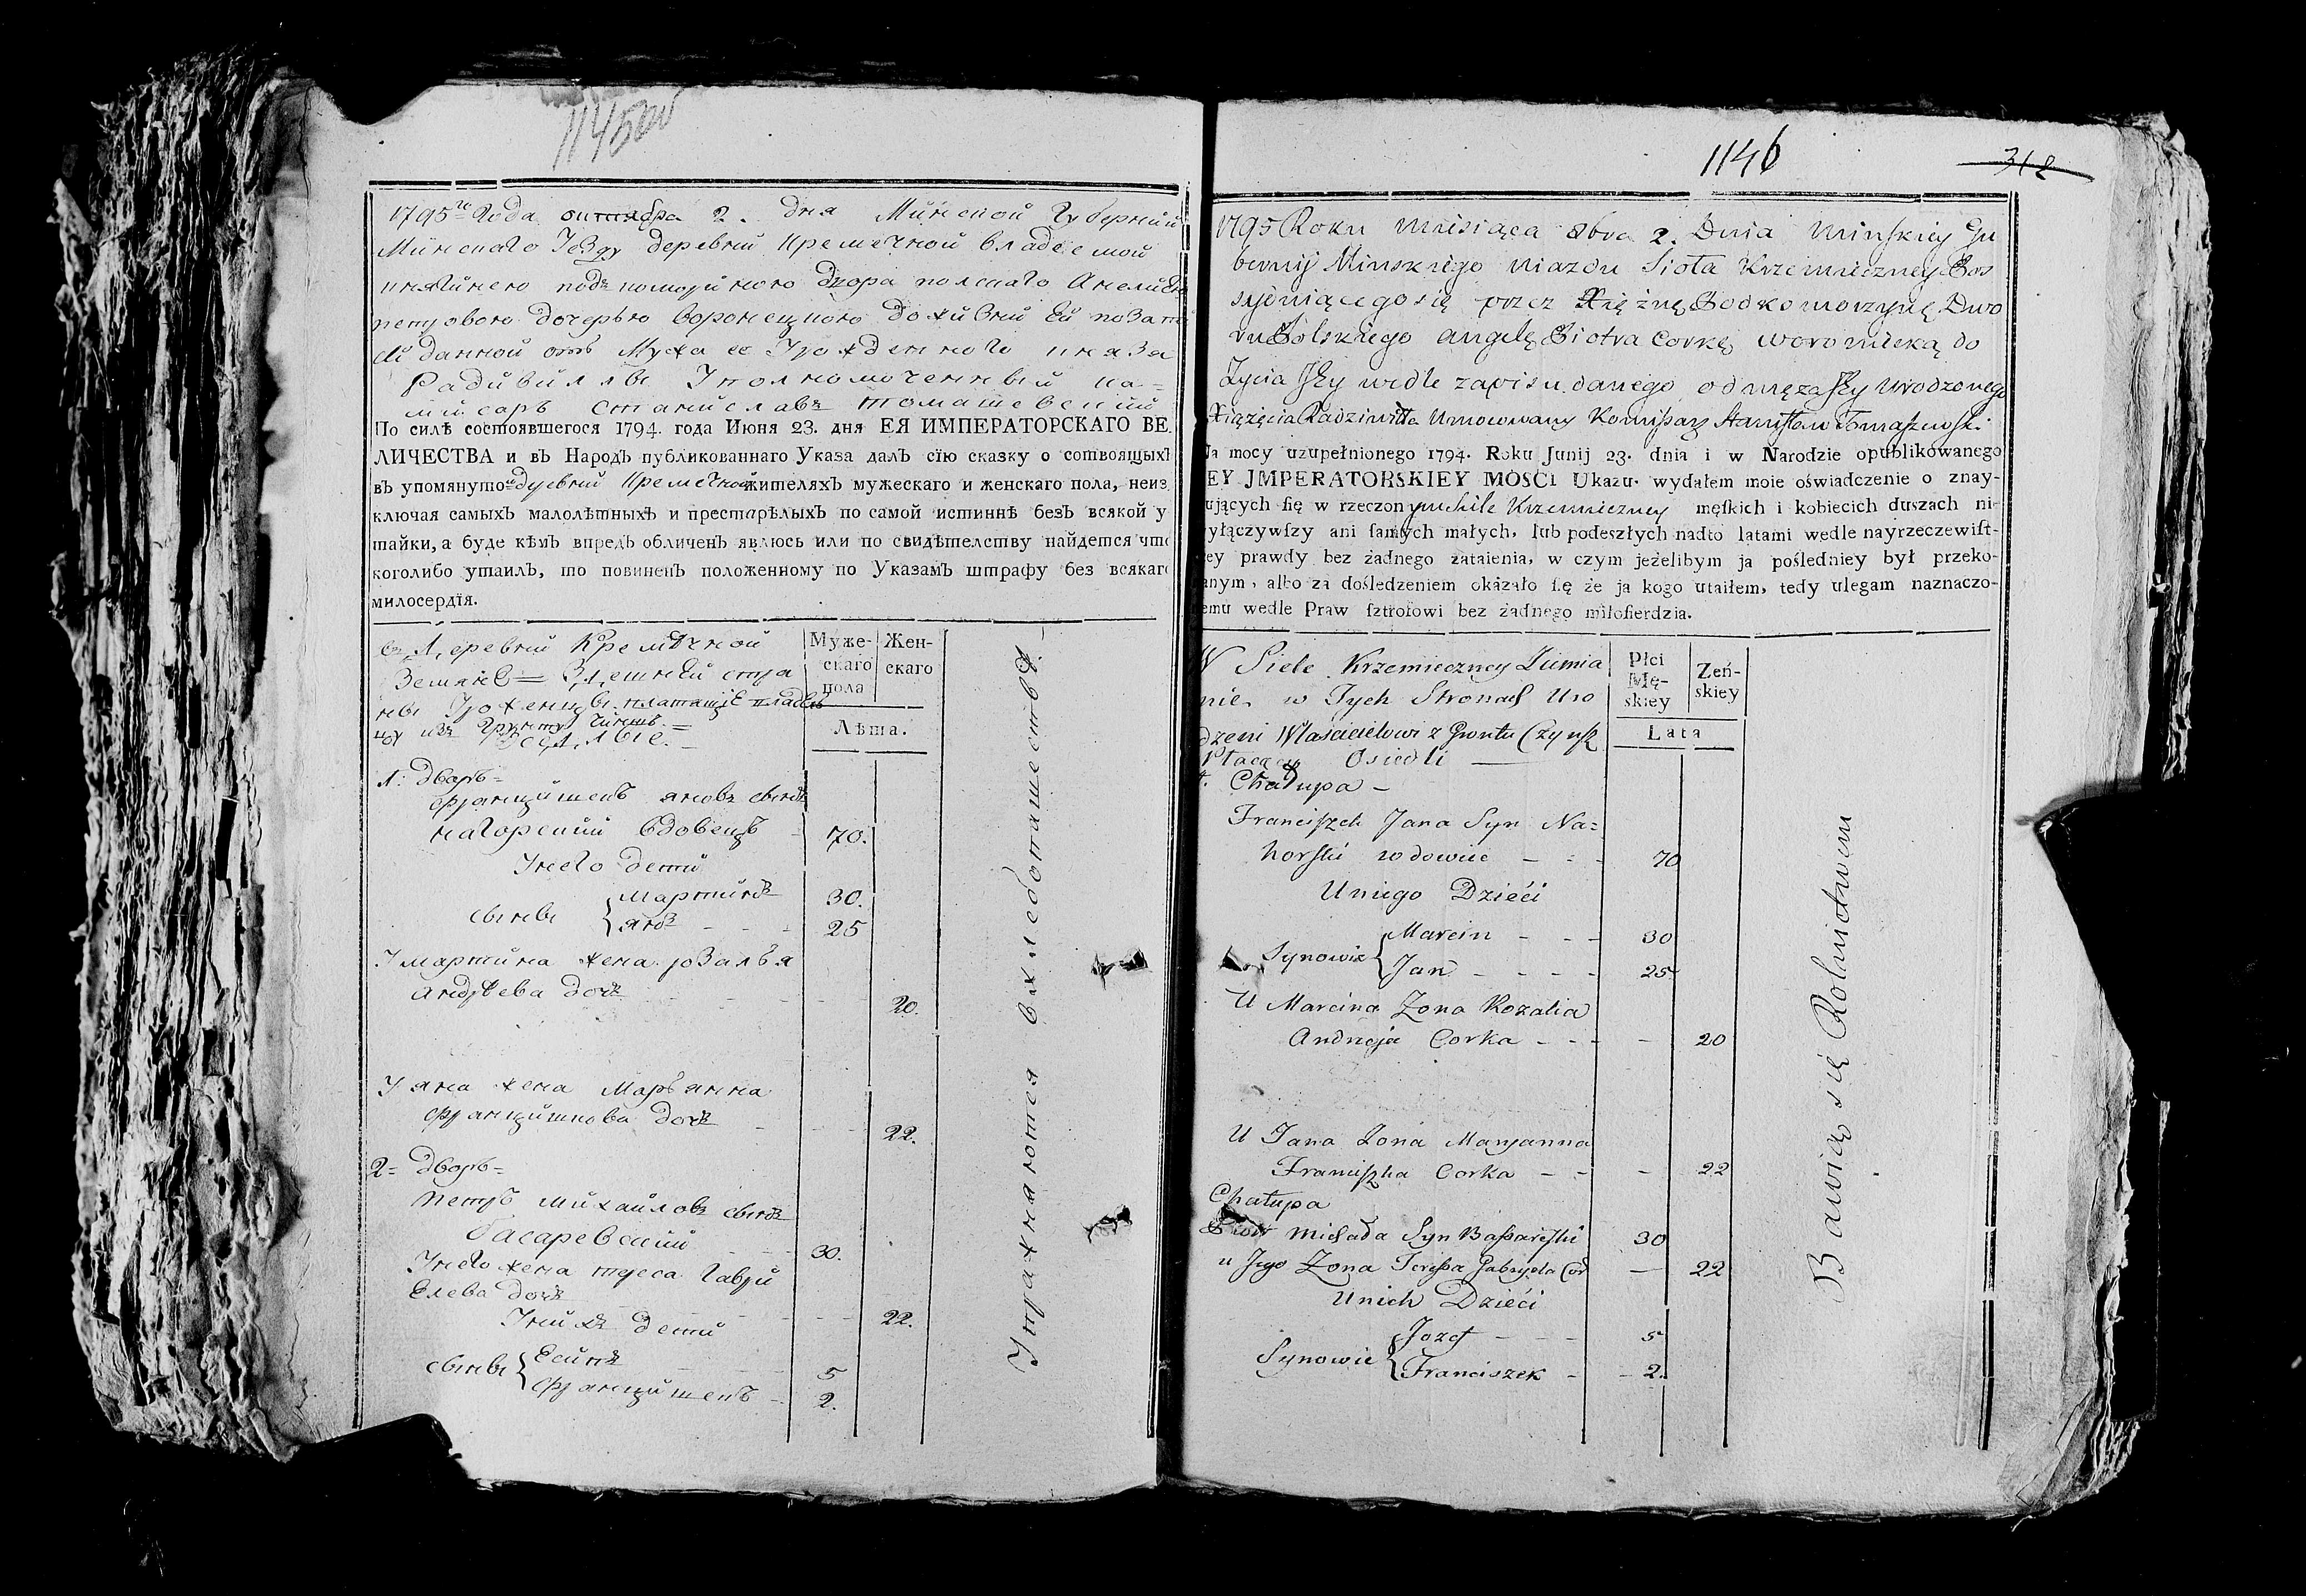 1145об
1795го Года октября 2. дня Минской Губернии
Минскаго Уезду деревни Кремечной владеемой
княгинею подкоморинною двора полскаго Анелиею
петровою дочерью воронецкою до живний ей по запи
си данной отъ Мужа ее Урожденного князя
Радивиллы Уполномоченный ко=
мисаръ Станиславъ томашевский
По силѣ состоявшегося 1794. года Июня 23. дня ЕЯ ИМПЕРАТОРСКАГО ВЕ
ЛИЧЕСТВА и въ Народъ публикованнаго Указа далъ сїю сказку о сотвоящыхъ
въ упомянутой деревни Кремечной жителяхъ мужескаго и женскаго пола, неиз
ключая самыхъ малолѣтныхъ и престарѣлыхъ по самой истиннѣ безъ всякой у
тайки, а буде кѣмъ впредь обличенъ явлюсь или по свидѣтелству найдется что
коголибо утаилъ, то повиненъ положенному по Указамъ штрафу без всякаго
милосердїя.
въ Деревни Кремечной
Земяне= Здешней стра
ны Уроженцы платящие владель
цу изъ Грунту чиншъ=
Оседлые.
Муже-
скаго
пола
Жен-
скаго
Лѣта.
1. дворъ=
францишекъ яновъ сынъ
нагорский вдовецъ - 70.
Унего дети
сыны { Мартинъ 30.
янъ - - - 25
У мартина жена розалья
андреева дочь - - - 20.
У яна жена Марьянна
францишкова дочь - - - 22.
2= дворъ=
петръ михайловъ сынъ
басаревский - - 30.
Унего жена тереса Гаври
елева дочь - - - 22.
Унихъ дети
сыны { Есипъ 5
францишекъ - 2.
Упражняются в хлебопашестве.
1146
312
1795 Roku Miesiąca 8bra 2. Dnia Minskiey Gu
bernij Minskiego Uiazdu Sioła Krzemieczney Pos
syduiącego się przez Xiężnę Podkomorzynę Dwo
ru Polskiego Angelę Piotra Corkę woroniecką do
Zycia Jey wedle zapisu danego od męża Jey Urodzonego
Xiążęcia Radziwiłła Umocowany Komissarz Stanisław Tomaszewski
Na mocy uzupełnionego 1794. Roku Junij 23. dnia i w Narodzie opublikowanego
EY JMPERATORSKIEY MOSCI Ukazu. wydałem moie oświadczenie o znay-
ujących się w rzeczonym Siele Krzemieczney męskich i kobiecich duszach ni-
yłączywszy ani samych małych, lub podeszłych nadto latami wedle nayrzeczewist-
ey prawdy bez żadnego zataienia, w czym jeżelibym ja pośledniey był przeko-
anym, albo za dośledzeniem okazało się że ja kogo utaiłem, tedy ulegam naznaczo-
emu wedle Praw sztrofowi bez żadnego miłosierdzia.
W Siele Krzemieczney Ziemia
nie w Tych Stronach Uro
dzeni Właścicielowi z Gruntu Czynsz
Płacący Osiedli
Płci
Mę-
skiey
Zeń-
skiey
Lata
1. Chałupa -
Franciszek Jana Syn Na=
horski wdowiec - - - 70
Uniego Dzieći
Synowie { Marcin - - - 30
Jan - - - - 25
U Marcina Zona Rozalia
Andrzeja Corka - - - - 20
U Jana Zona Maryanna
Franciszka Corka - - - 22
Chałupa
Piotr Michała Syn Bassarewski 30
u Jego Zona Teressa Gabryela Cor - 22
Unich Dzieći
Synowie { Jozef - - - 5
Franciszek - - 2.
Bawią się Rolnictwem